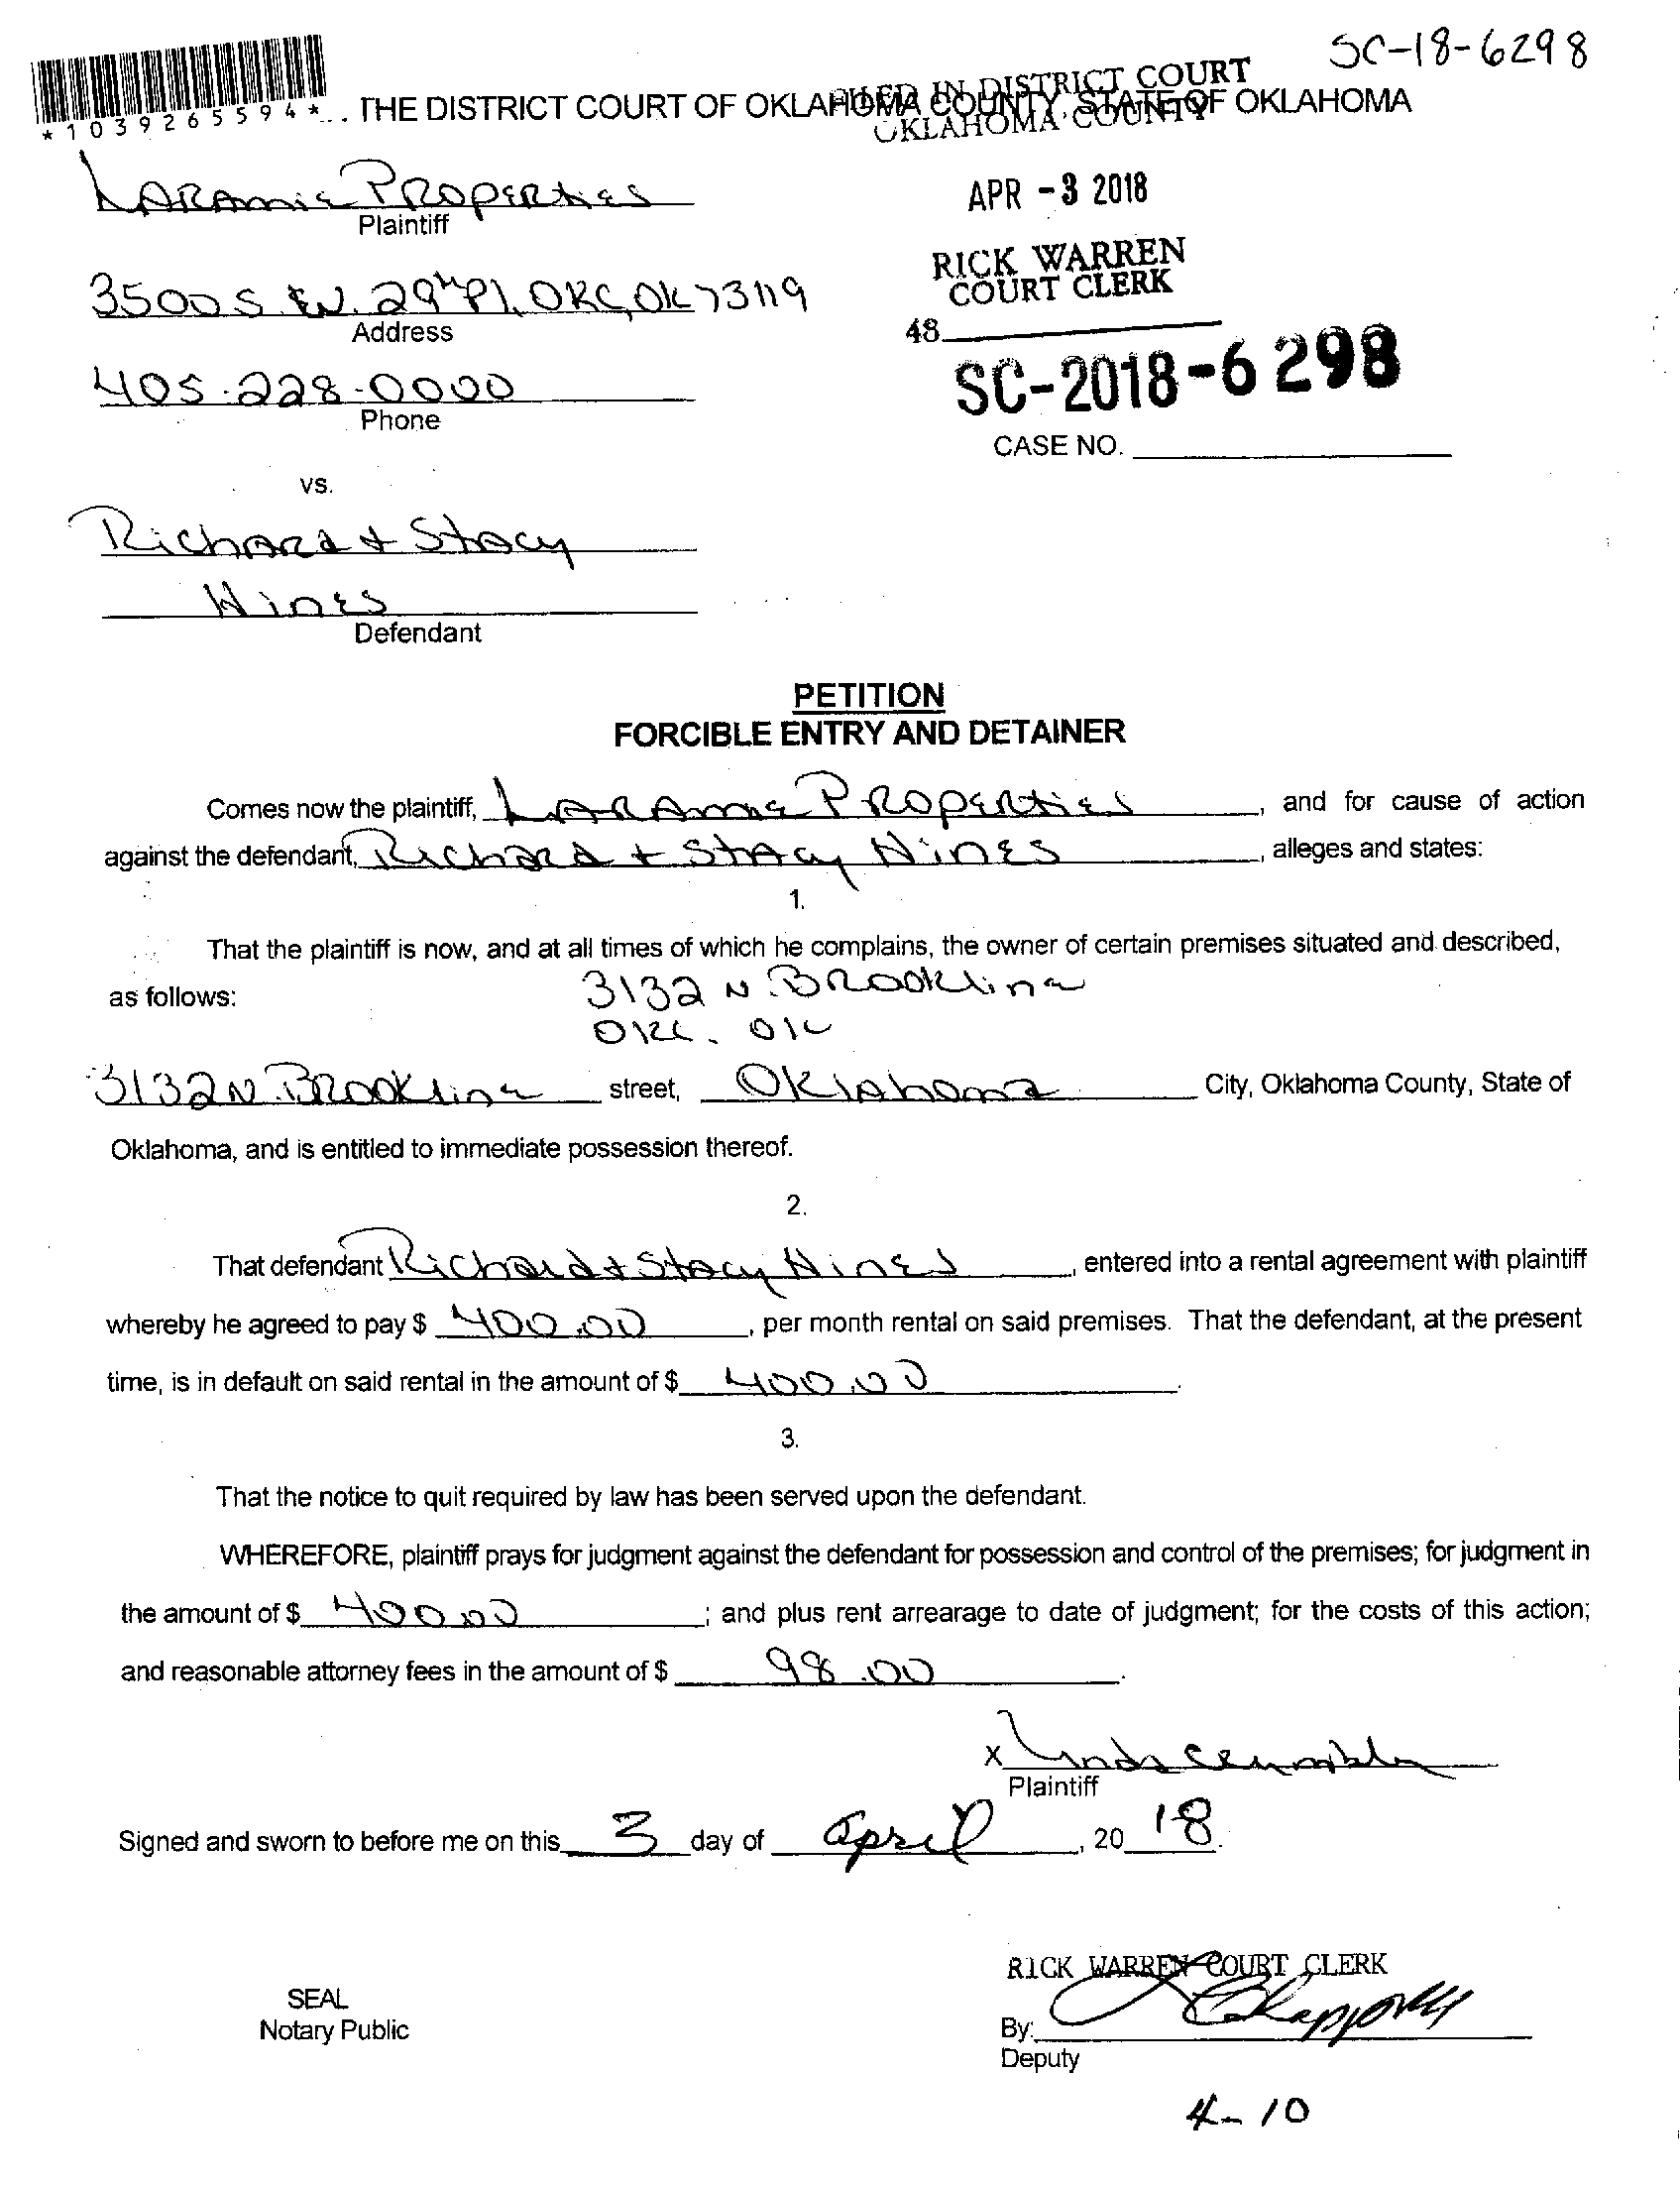 SC-18-6298
*1039265594*
... THE DISTRICT COURT OF OKLAHOMA COUNTY, STATE OF OKLAHOMA
FILED IN DISTRICT COURT
OKLAHOMA COUNTY
Laramie Properties
Plaintiff
APR -3 2018
RICK WARREN
COURT CLERK
3500 S.W. 29th Pl. OKC, OK 73119
Address
48
405-228-0000
Phone
SC-2018-6298
CASE NO.
vs.
Richard + Stacy
Hines
Defendant
PETITION
FORCIBLE ENTRY AND DETAINER
Comes now the plaintiff, Laramie Properties, and for cause of action
against the defendant, Richard + Stacy Hines, alleges and states:
1.
That the plaintiff is now, and at all times of which he complains, the owner of certain premises situated and described,
as follows: 3132 N. Brookline
OKC. OK
3132 N. Brookline street, Oklahoma City, Oklahoma County, State of
Oklahoma, and is entitled to immediate possession thereof.
2.
That defendant Richard + Stacy Hines, entered into a rental agreement with plaintiff
whereby he agreed to pay $ 400.00, per month rental on said premises. That the defendant, at the present
time, is in default on said rental in the amount of $ 400.00.
3.
That the notice to quit required by law has been served upon the defendant.
WHEREFORE, plaintiff prays for judgment against the defendant for possession and control of the premises; for judgment in
the amount of $ 400.00; and plus rent arrearage to date of judgment; for the costs of this action;
and reasonable attorney fees in the amount of $ 98.00.
X
Plaintiff
Signed and sworn to before me on this 3 day of April, 20 18.
RICK WARREN COURT CLERK
SEAL
Notary Public
By:
Deputy
4-10